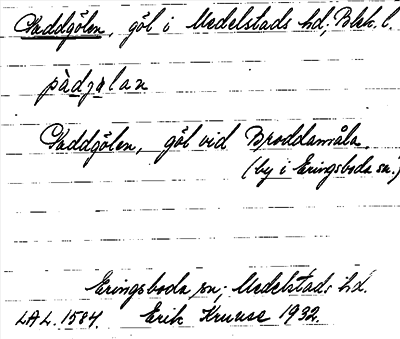 Paddgölen, göl i Medelstads hd, Blek. l.
pàdjølan
Paddgölen, göl vid Broddamåla.
(by i Eringsboda sn.)
Eringsboda sn; Medelstads hd.
LAL. 1584. Erik Kruuse 1932.